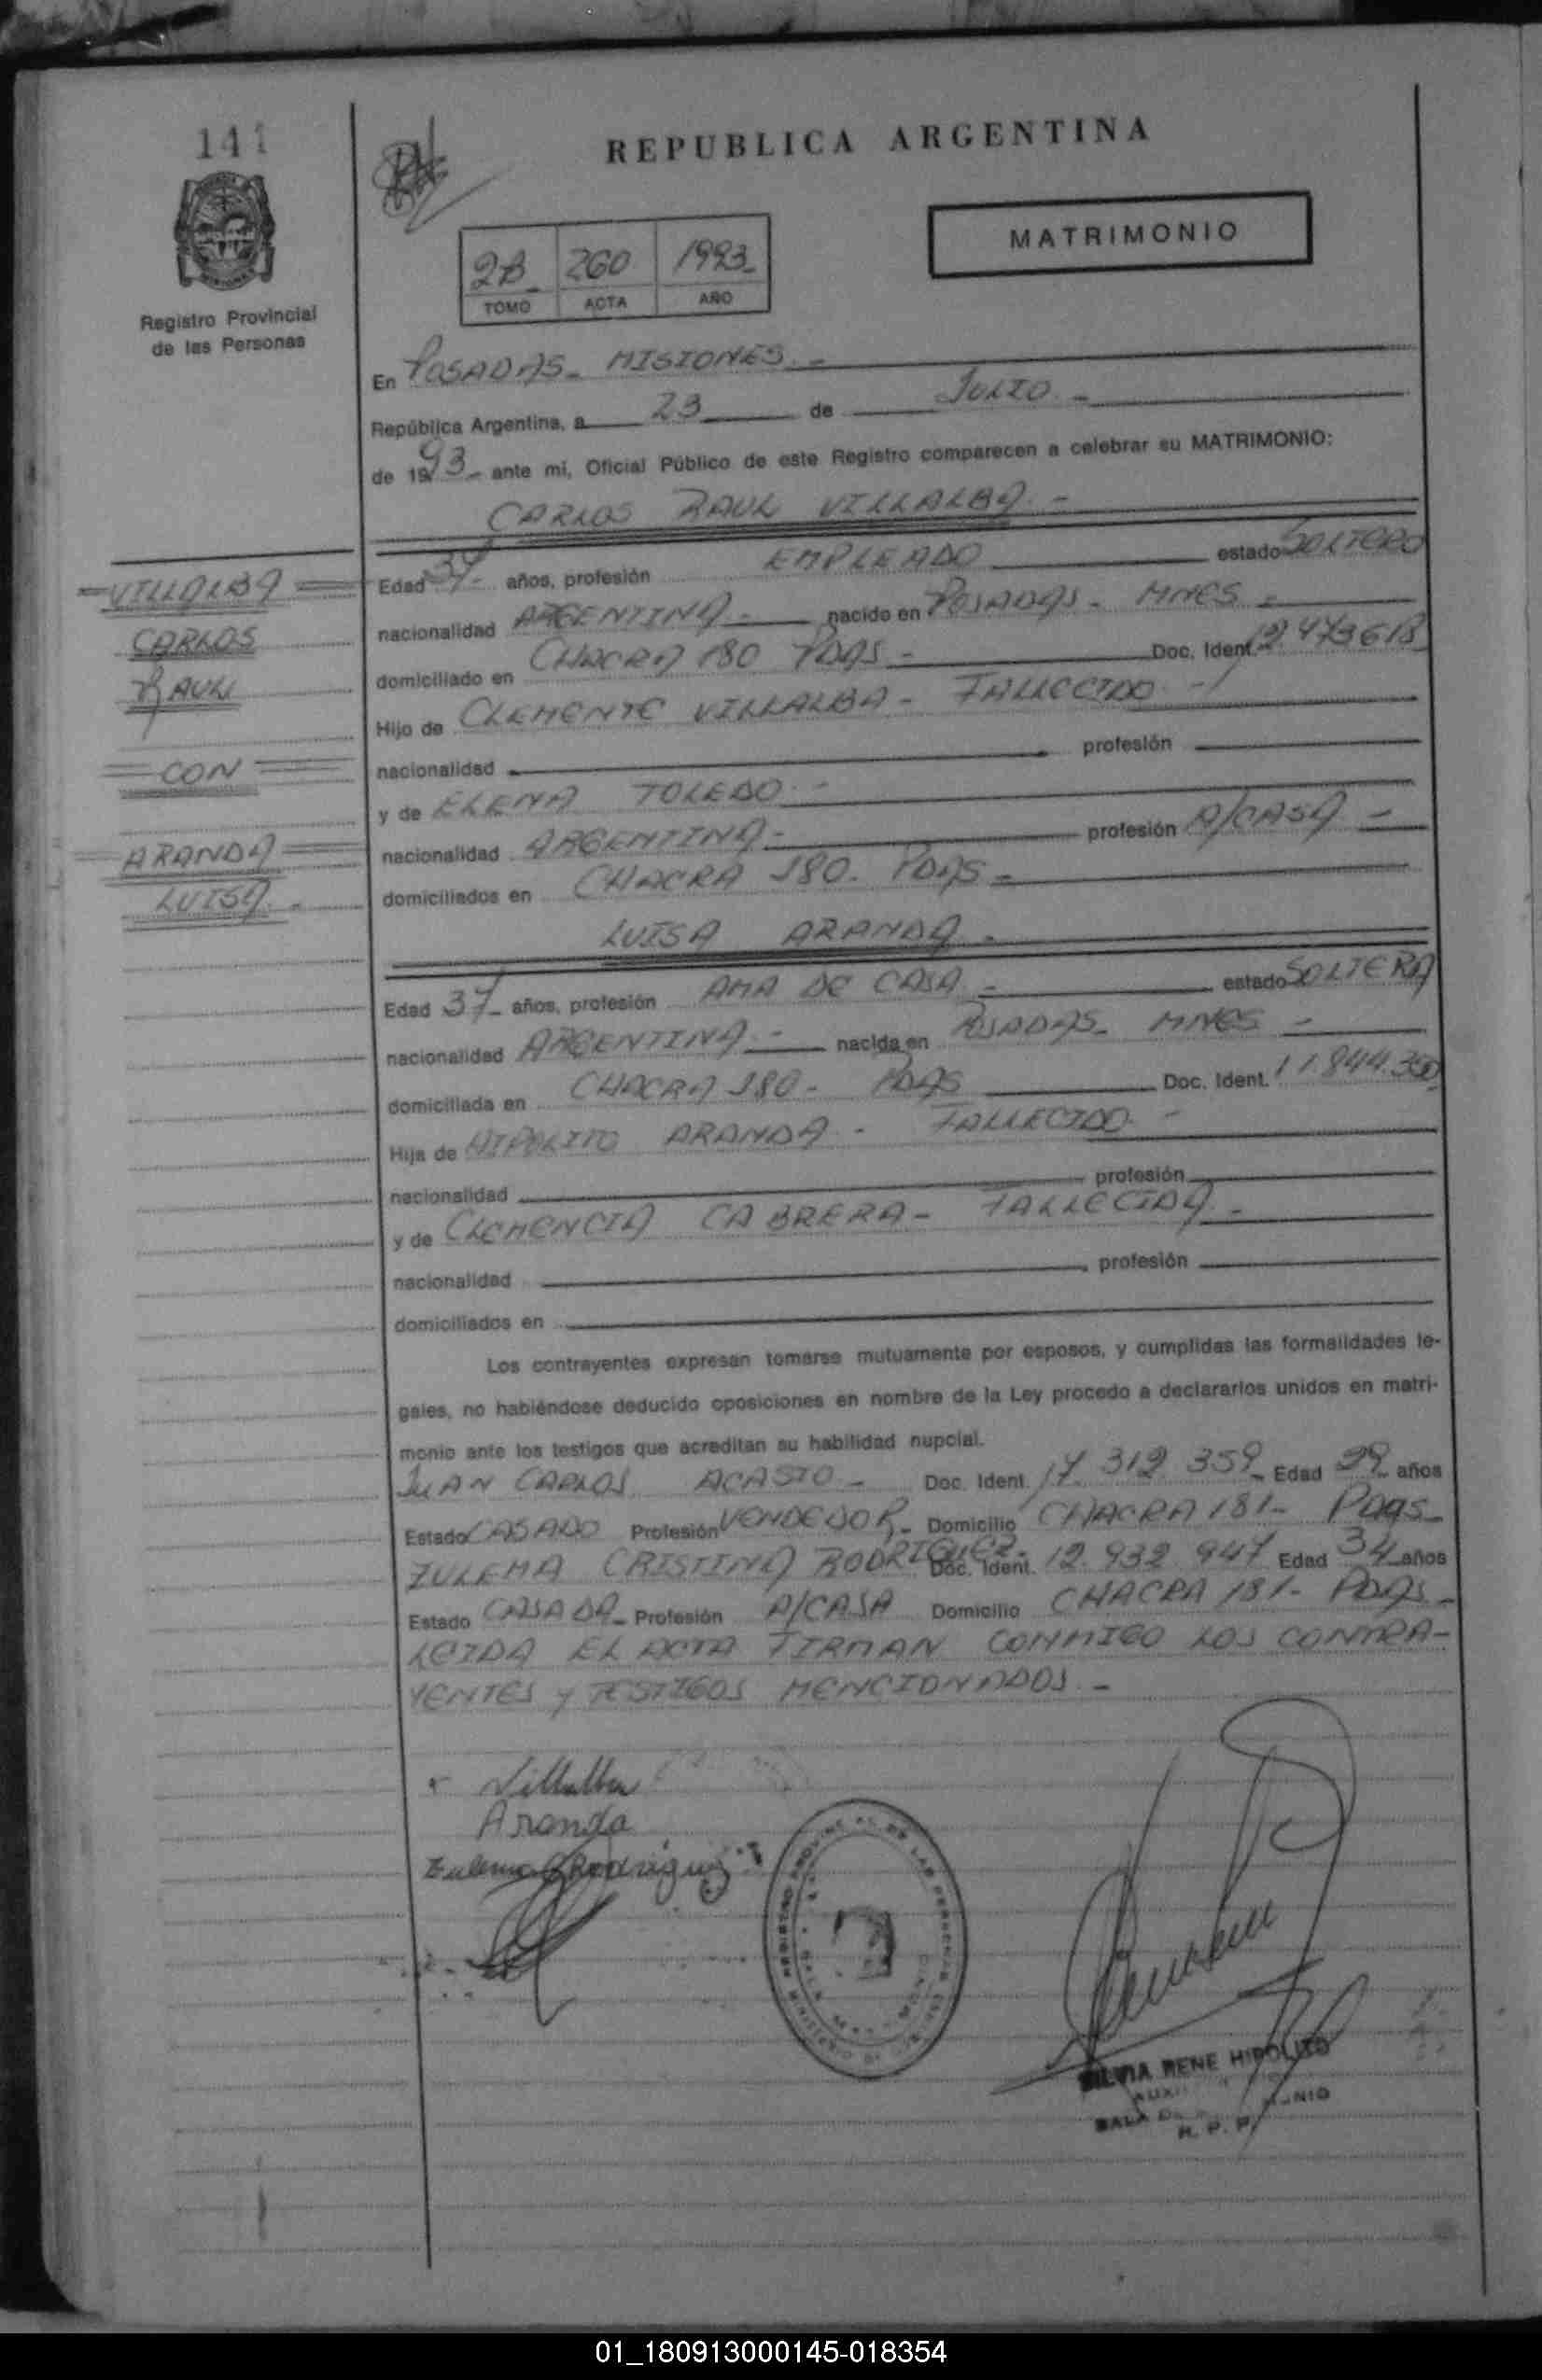 141
REPUBLICA ARGENTINA
MATRIMONIO
2B 260 1993
TOMO ACTA AÑO
Registro Provincial
de las Personas
En POSADAS - MISIONES -
República Argentina, a 23 de JULIO -
de 1993 - ante mi, Oficial Público de este Registro comparecen a celebrar su MATRIMONIO:
CARLOS RAUL VILLALBA -
VILLALBA
CARLOS
RAUL
CON
ARANDA
LUISA -
Edad años, profesión EMPLEADO estado SOLTERO
nacionalidad ARGENTINA - nacido en POSADAS - MNES -
domiciliado en CHACRA 180 PDAS - Doc. Ident. 12.473618
Hijo de CLEMENTE VILLALBA - FALLECIDO -
nacionalidad profesión
y de ELENA TOLEDO -
nacionalidad ARGENTINA - profesión A/CASA -
domiciliados en CHACRA 180 - PDAS -
LUISA ARANDA -
Edad 37 - años, profesión AMA DE CASA - estado SOLTERA
nacionalidad ARGENTINA - nacida en POSADAS - MNES -
domiciliada en CHACRA 180 - PDAS Doc. Ident. 11.844.350
Hija de HIPOLITO ARANDA - FALLECIDO -
nacionalidad profesión
y de CLEMENCIA CABRERA - FALLECIDA -
nacionalidad profesión
domiciliados en
Los contrayentes expresan tomarse mutuamente por esposos, y cumplidas las formalidades le-
gales, no habiéndose deducido oposiciones en nombre de la Ley procedo a declararlos unidos en matri-
monio ante los testigos que acreditan su habilidad nupcial.
JUAN CARLOS ACASTO - Doc. Ident. 17.312.359 - Edad 29 - años
Estado CASADO Profesión VENDEDOR - Domicilio CHACRA 181 - PDAS -
ZULEMA CRISTINA RODRIGUEZ - Doc. Ident. 12.932.947 Edad 34 años
Estado CASADA - Profesión A/CASA Domicilio CHACRA 181 - PDAS -
LEIDA EL ACTA FIRMAN CONMIGO LOS CONTRA-
YENTES y TESTIGOS MENCIONADOS -
Villalba
Aranda
Zulema C Rodriguez
SILVIA RENE HIPOLITO
R. P. P.
01_180913000145-018354